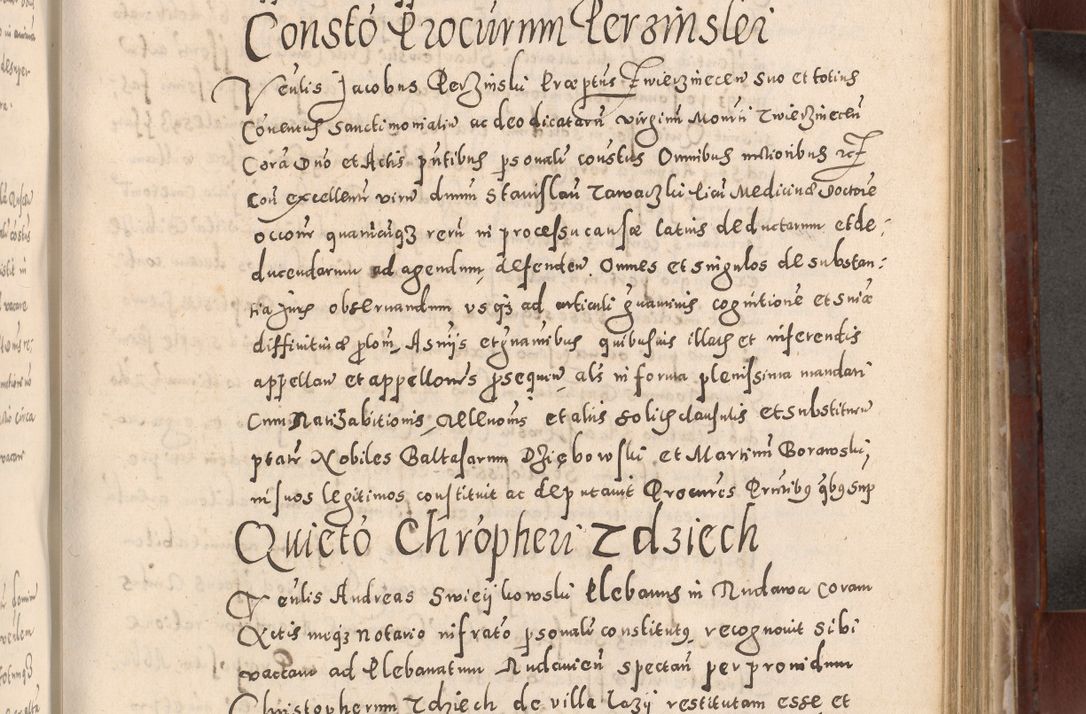 Constō Procurnm Perzinslei
Venlis Jacobus Perzinski Præptus Zwierzinecen suo et totius
Conentus Sanctimonialiu ac deo dicatarū virginū Monrū Zwierzinecen
Corā Dno et Actis pntibus psonalr constus Omnibus melioribus
Con excellem virū dnum Stanislau Tawaczki licu Medicinæ Doctore
occone quarūcuqz rerū in processu causæ latius deductarum et de-
ducendarum ad agendum, defenden. Omnes et singulos de substan-
tia juris obseruandum vsqz ad articuli grauminis cognitione et suiæ
diffinitiuæ plom. A sniis et grauibus quibusuis illatis et inferendis
appellan et appellones psequen, als in forma plenissima mandati
Cum Ratihabitionis relleuonis et aliis solitis clausulis et substituen
ptate Nobiles Baltasarum Dziębowski et Martinū Borawski,
in suos legitimos constituit ac deputauit Procures Pntibq qbq snp
Quietō Chrōpheri Zdziech
Venlis Andreas Swieykowski Plebanus in Rudawa coram
Actis meqz Notario infrato psonalr constitutq recognouit sibi
vactam ad Plebanatum Rudauien spectan per prouidum
Christopherum Zdziech de villa Lazy restitutam esse et